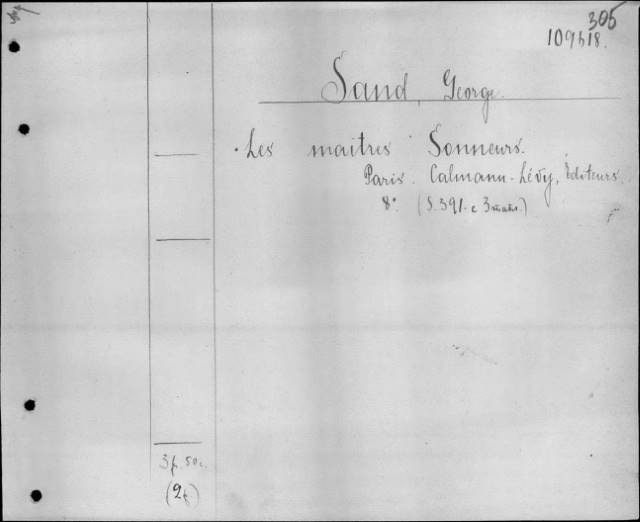 305
109518.
Sand, George.
Les maitres Sonneurs.
Paris. Calmann-Lévy, Editeurs.
8° (S. 391. e 3 )
3 f. 50 c.
(2 f)